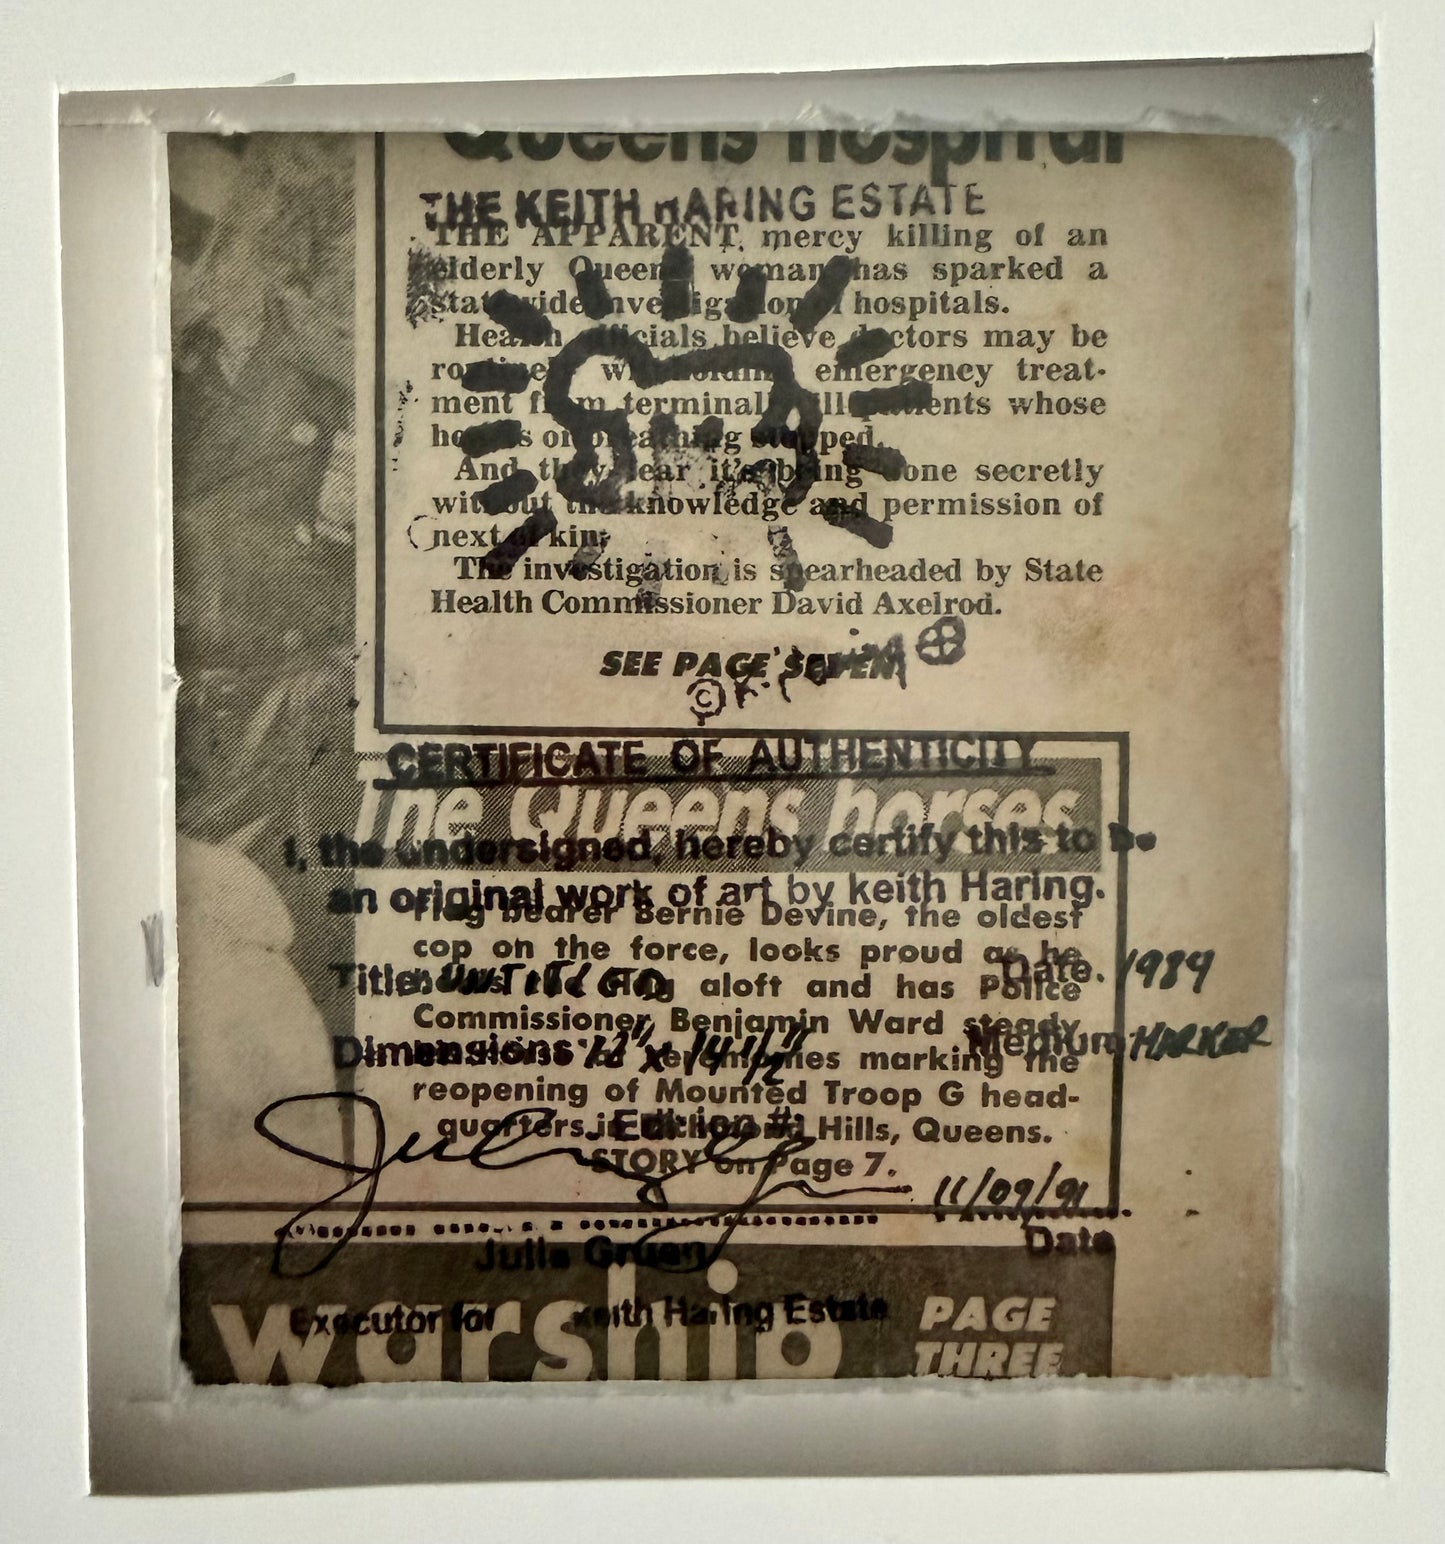 Queens hospital
THE KEITH HARING ESTATE
THE APPARENT mercy killing of an
elderly Queens woman has sparked a
statewide investigation of hospitals.
Health officials believe doctors may be
routinely withholding emergency treat-
ment from terminally ill patients whose
hearts or breathing stopped.
And they fear it's being done secretly
without the knowledge and permission of
next of kin.
The investigation is spearheaded by State
Health Commissioner David Axelrod.
SEE PAGE SEVEN
©
CERTIFICATE OF AUTHENTICITY
The Queens horses
I, the undersigned, hereby certify this to be
an original work of art by keith Haring.
Flag bearer Bernie Devine, the oldest
cop on the force, looks proud as he
Title: UNTITLED Date. 1984
flag aloft and has Police
Commissioner Benjamin Ward steady
Dimensions: 12" x 14 1/2" Medium MARKER
ceremonies marking the
reopening of Mounted Troop G head-
quarters in Richmond Hills, Queens.
Edition #:
STORY on Page 7.
11/09/91
Julia Gruen Date
Executor for Keith Haring Estate
warship PAGE
THREE